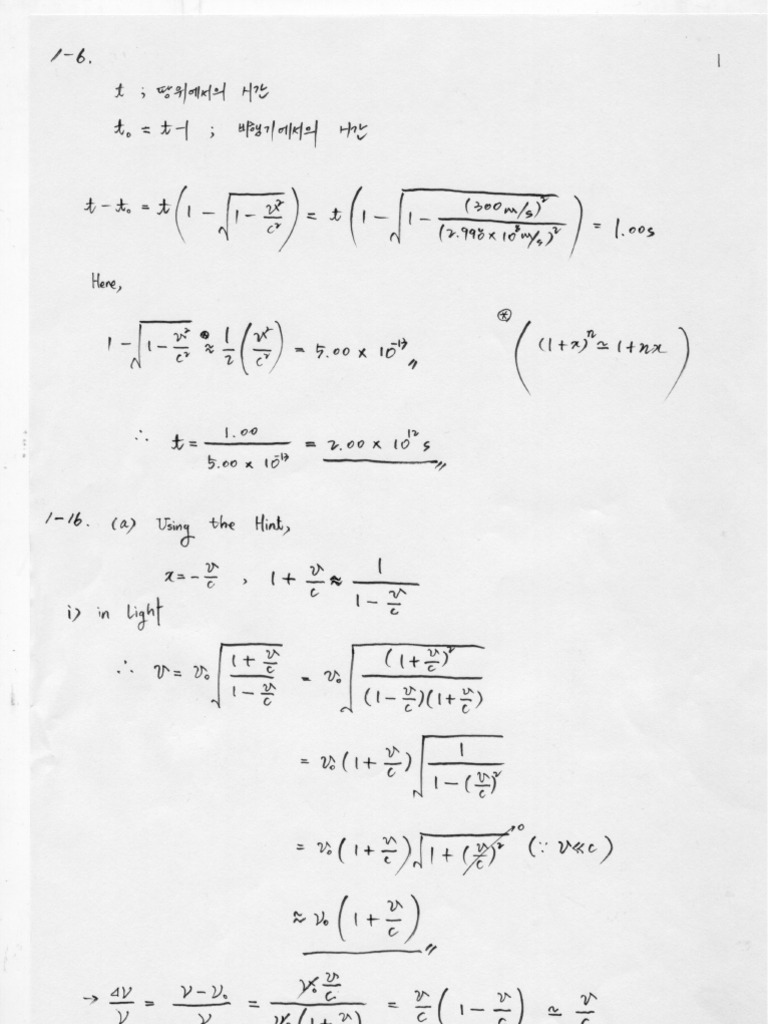 1-6.
1
t ; 땅위에서의 시간
t₀ = t-1 ; 비행기에서의 시간
t - t₀ = t(1 - √(1 - v²/c²)) = t(1 - √(1 - (300 m/s)²/(2.998 × 10⁸ m/s)²)) = 1.00s
Here,
1 - √(1 - v²/c²) ≈ 1/2 (v²/c²) = 5.00 × 10⁻¹³〃
⊛ ((1+x)ⁿ ≃ 1+nx)
∴ t = 1.00/(5.00 × 10⁻¹³) = 2.00 × 10¹² s〃
1-16. (a) Using the Hint,
x = -v/c , 1 + v/c ≈ 1/(1 - v/c)
i) in Light
∴ ν = ν₀ √((1 + v/c)/(1 - v/c)) = ν₀ √((1 + v/c)²/((1 - v/c)(1 + v/c)))
= ν₀ (1 + v/c) √(1/(1 - (v/c)²))
= ν₀ (1 + v/c) √(1 + (v/c)²) →0 (∵ v≪c)
≈ ν₀ (1 + v/c)〃
→ Δν/ν = (ν - ν₀)/ν = (ν₀ v/c)/(ν₀(1 + v/c)) = v/c (1 - v/c) ≃ v/c